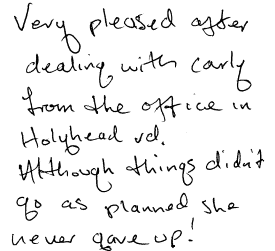 Very pleased after
dealing with carly
from the office in
Holyhead rd.
Although things didn't
go as planned she
never gave up!